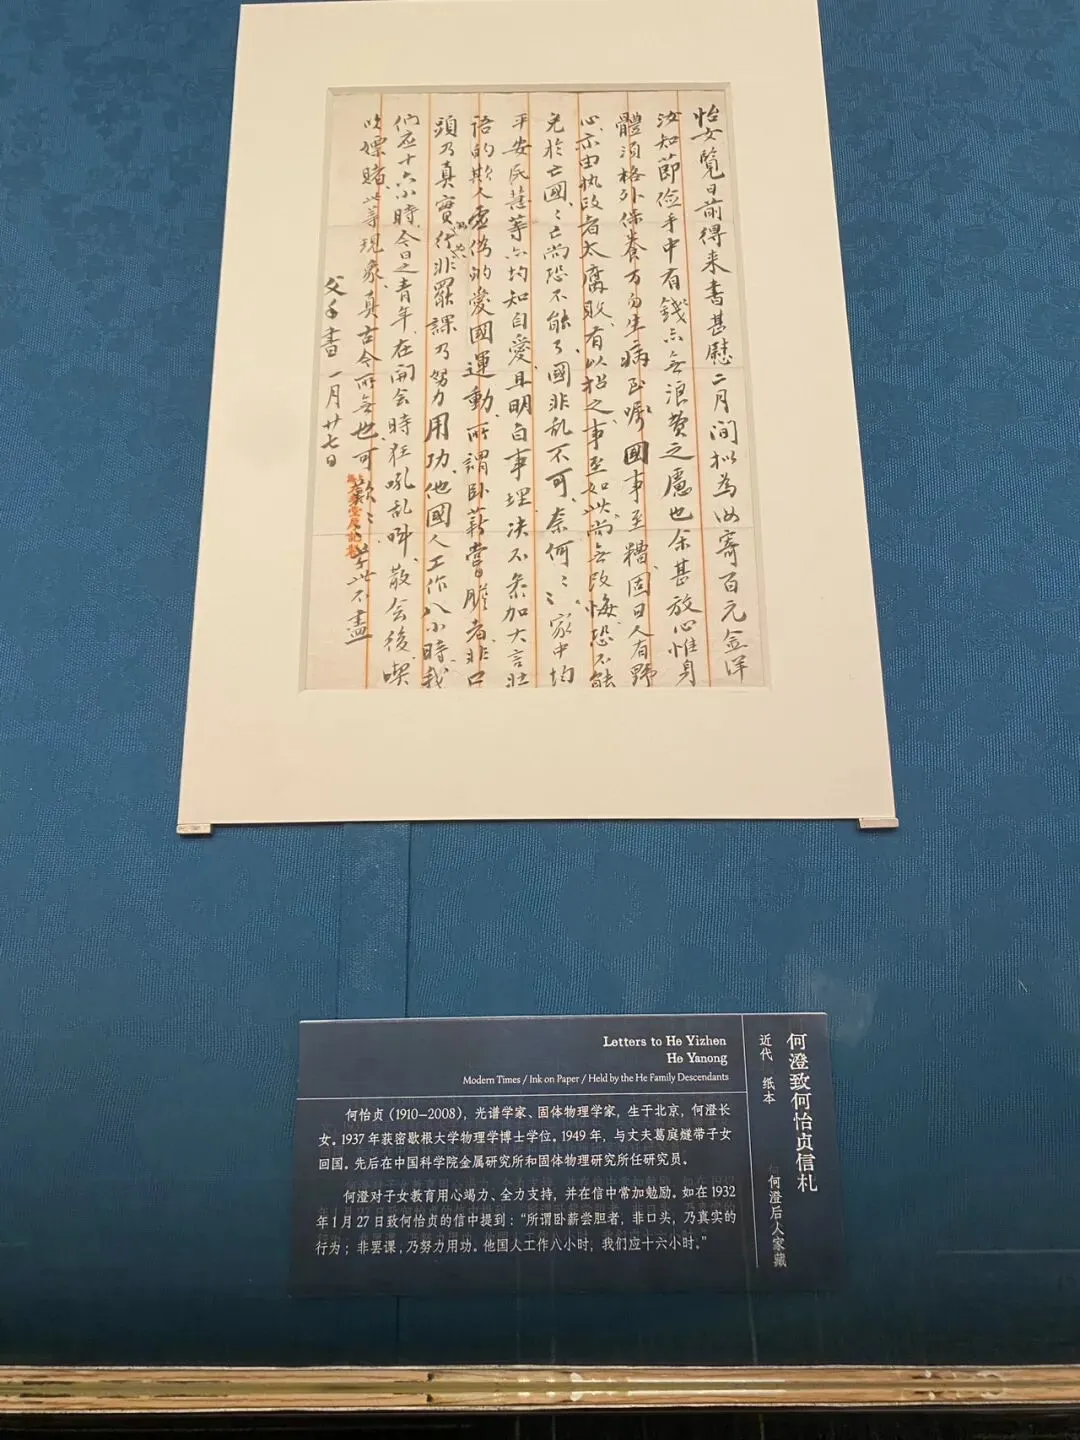 怡女覽日前得来書甚慰二月间拟為汝寄百元金洋
汝知節俭手中有錢亦无浪费之慮也余甚放心惟身
體須格外保養万勿生病至嘱國事至糟固日人有野
心亦由执政者太腐败有以招之事至如此尚无改悔恐不能
免於亡國〻亡尚恐不能了國非乱不可奈何〻〻家中均
平安民慧等亦均知自愛且明白事理决不参加大言壮
语的欺人虚偽的愛國運動所謂卧薪嘗膽者非口
頭乃真實行為非罷課乃努力用功他國人工作八小時我
们应十六小時今日之青年在開会時狂吼乱叫散会後喫
吹嫖賭此等現象真古今所无也可歎〻〻 此不盡
父手書 一月廿七日
何澄致何怡贞信札
近代 纸本
何澄后人家藏
Letters to He Yizhen
He Yanong
Modern Times / Ink on Paper / Held by the He Family Descendants
何怡贞（1910—2008），光谱学家、固体物理学家，生于北京，何澄长
女。1937年获密歇根大学物理学博士学位。1949年，与丈夫葛庭燧带子女
回国。先后在中国科学院金属研究所和固体物理研究所任研究员。
何澄对子女教育用心竭力、全力支持，并在信中常加勉励。如在1932
年1月27日致何怡贞的信中提到：“所谓卧薪尝胆者，非口头，乃真实的
行为；非罢课，乃努力用功。他国人工作八小时，我们应十六小时。”